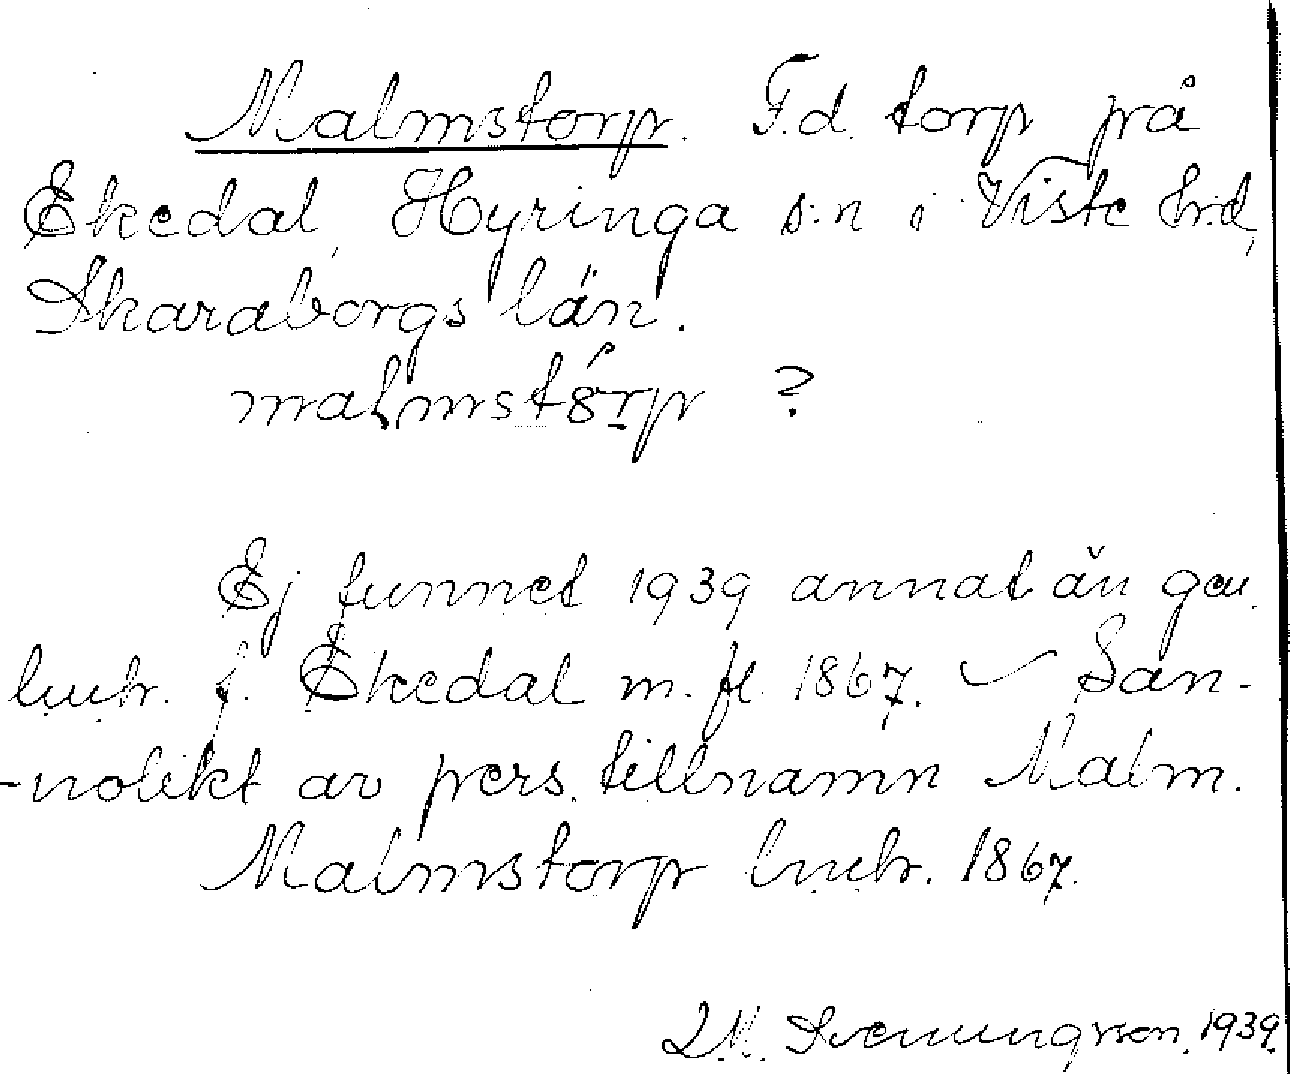 Malmstorp. F.d. torp på
Ekedal, Hyringa s:n i Viste hrd,
Skaraborgs län.
malmstorp ?
Ej funnet 1939 annat än gm.
lmtr. f. Ekedal m. fl. 1867. San-
-nolikt av pers. tillnamn Malm.
Malmstorp lmtr. 1867.
Svenungsson. 1939.